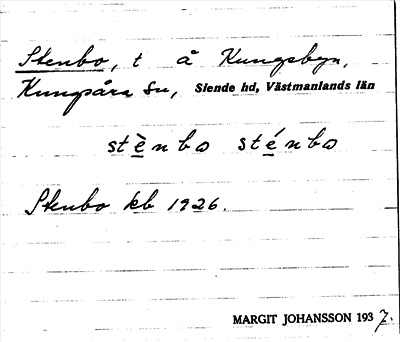 Stenbo, t å Kungsbyn,
Kungsåra sn, Siende hd, Västmanlands län
stènbω sténbω
Stenbo kb 1926.
MARGIT JOHANSSON 1937.